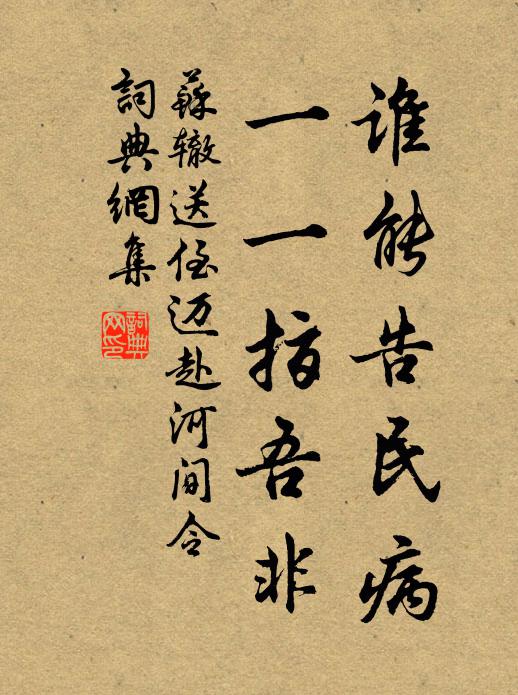 谁能告民病
一一指吾非
蘇辙送侄迈赴河间令
詞典網集
詞典网印